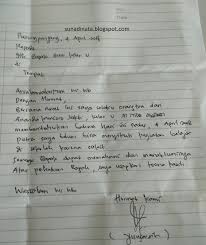 sunardinata.blogspot.com
4 April
Kepada
Yth. Bapak Guru kelas V
di
Tempat
Assalamualaikum Wr. Wb
Dengan Hormat,
Bersama surat ini saya selaku orangtua dari
kelas V
memberitahukan bahwa hari ini 4 April
putra saya tidak bisa mengikuti kegiatan belajar
di sekolah karena sakit
Semoga Bapak dapat memahami dan memakluminya
Atas perhatian Bapak, saya ucapkan terima kasih
Wassalam Wr. Wb
Hormat kami